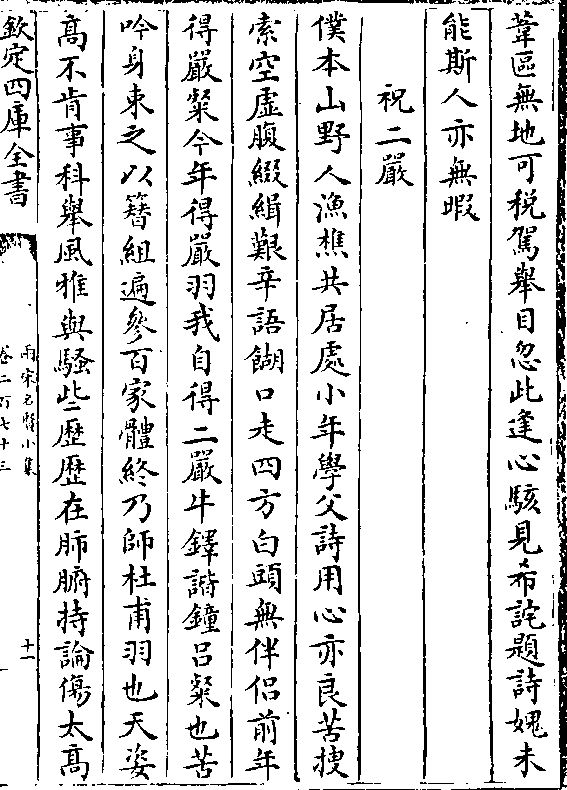 葦區無地可税駕舉目忽此逢心駭見希詫題詩媿未
能斯人亦無暇
祝二嚴
僕本山野人漁樵共居處小年學父詩用心亦良苦搜
索空虛腹綴緝艱辛語餬口走四方白頭無伴侶前年
得嚴粲今年得嚴羽我自得二嚴牛鐸諧鐘吕粲也苦
吟身束之以簪組遍參百家體終乃師杜甫羽也天姿
高不肯事科舉風雅與騷些歴歴在肺腑持論傷太高
欽定四庫全書
兩宋名賢小集
卷二百七十三
十一